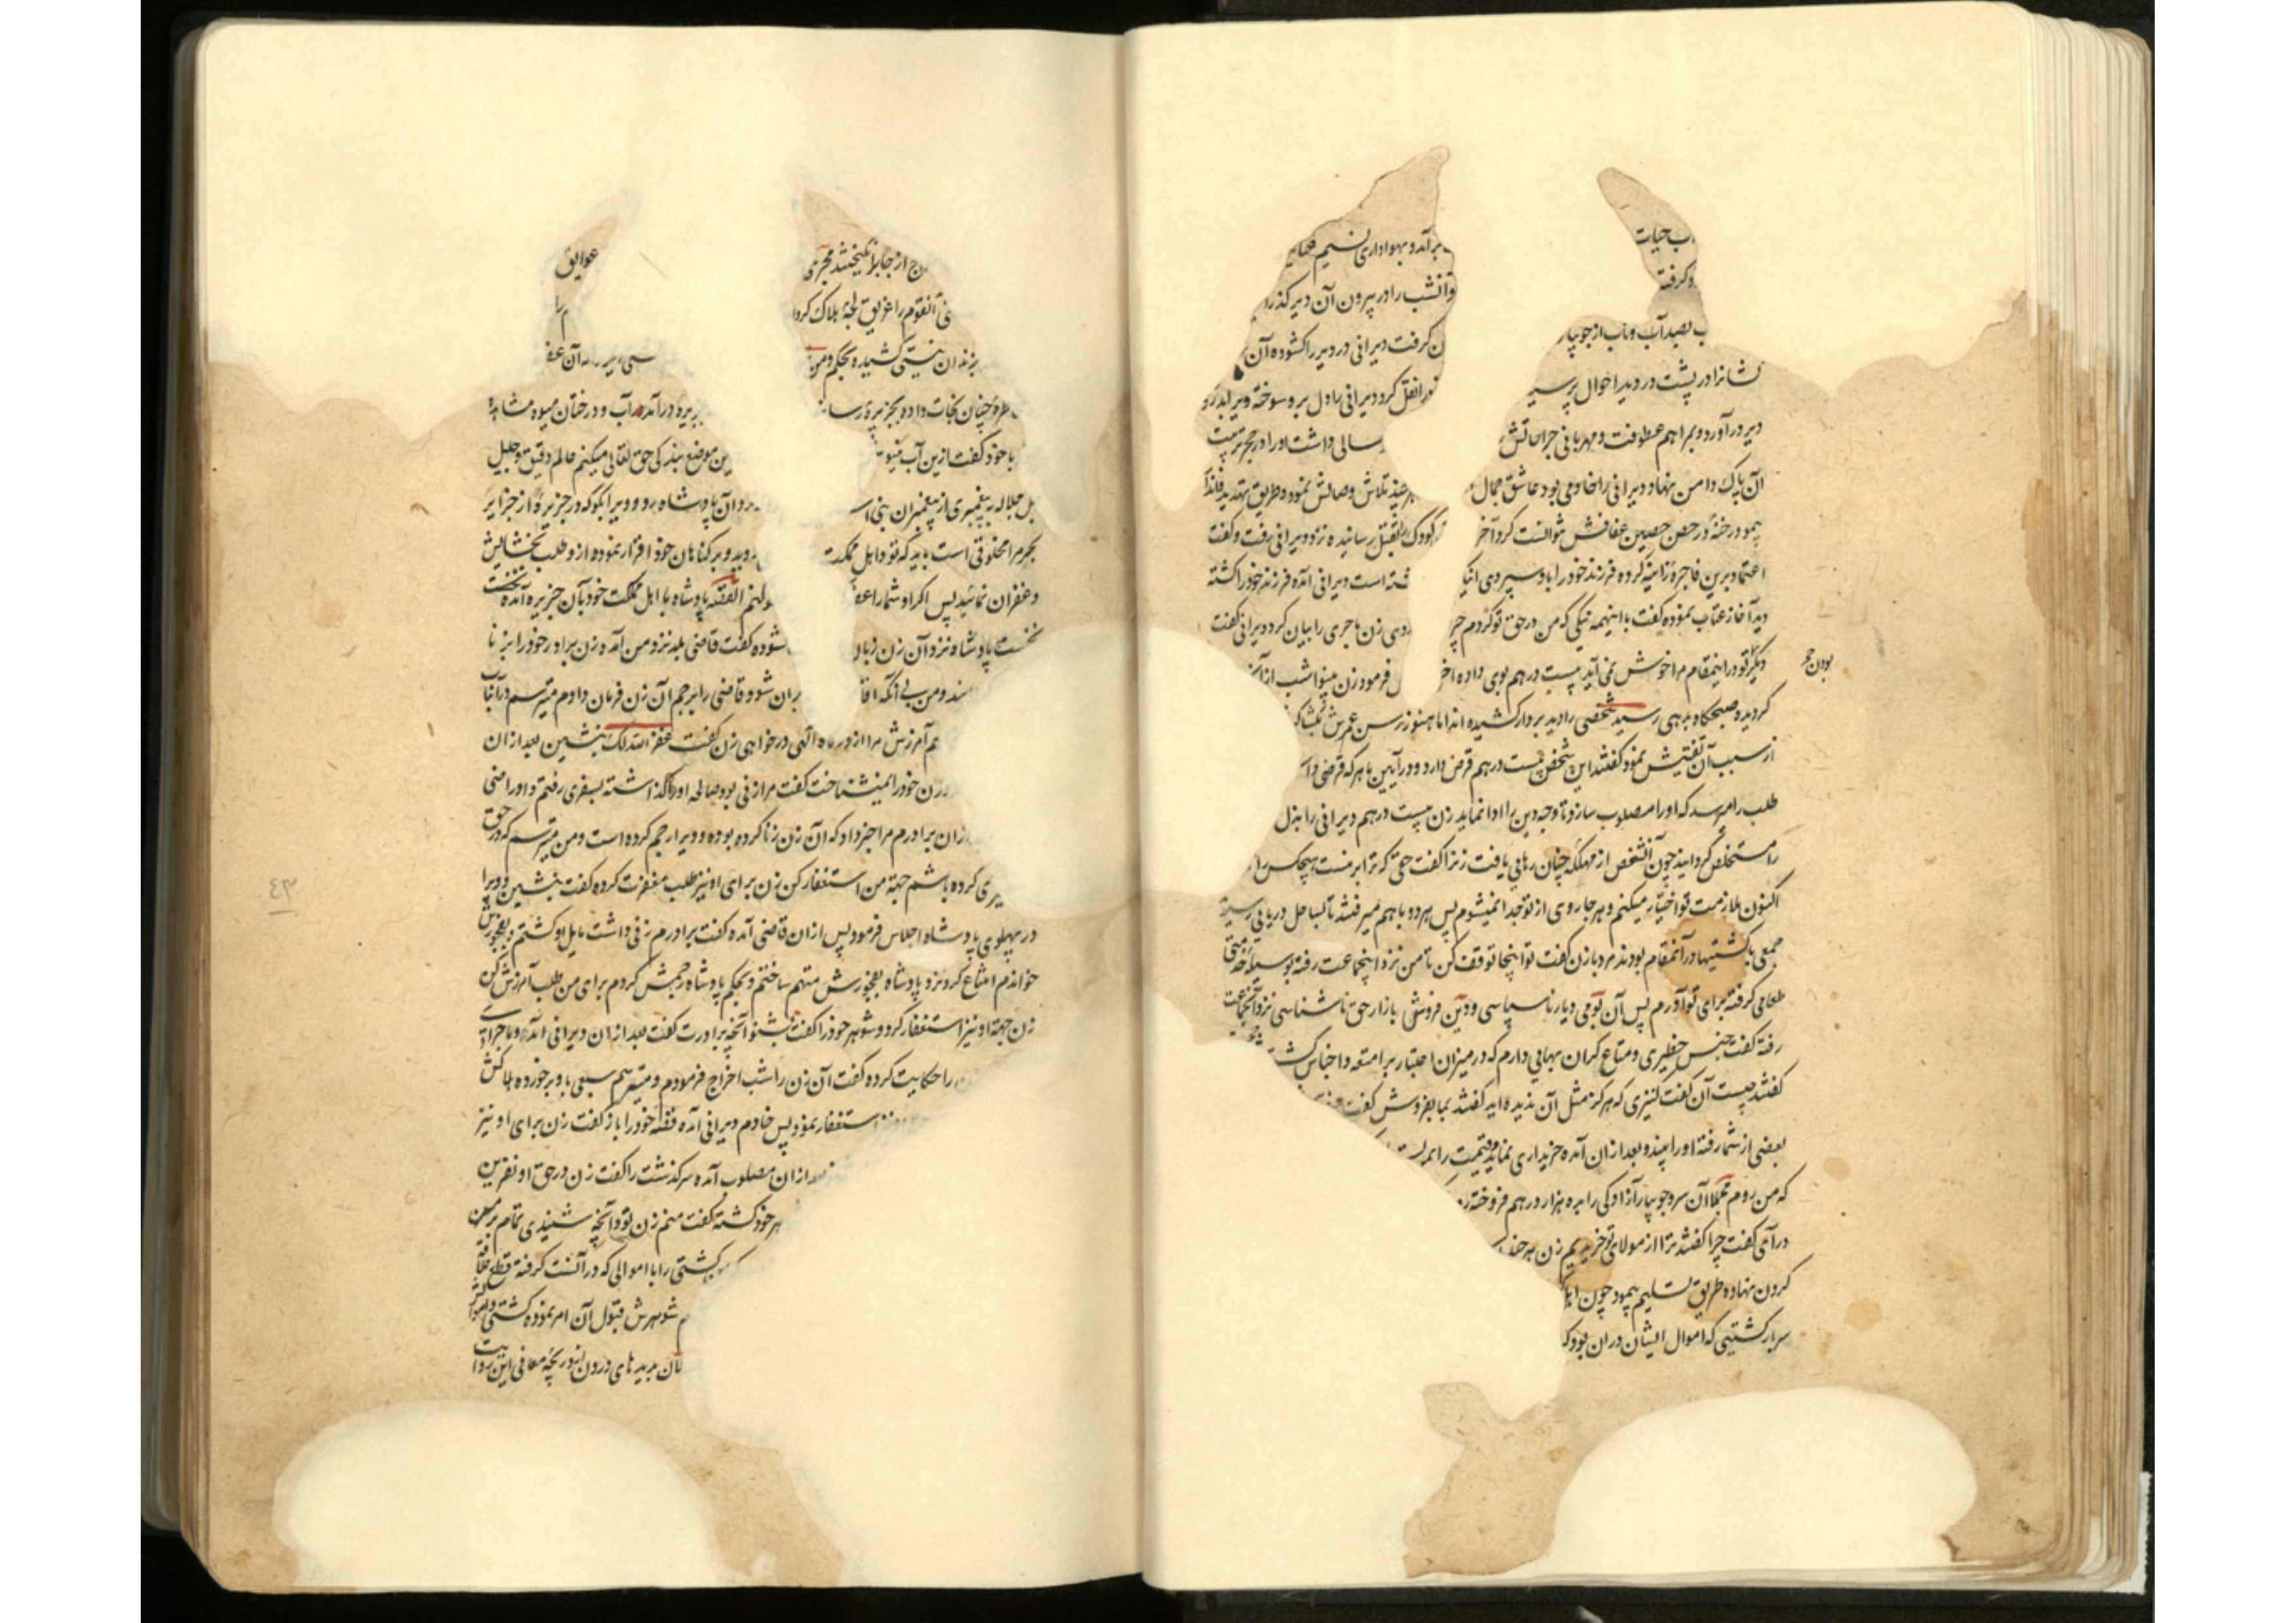 ب حیات
برآمد و بهواداری نسیم
و کرفته
وآنشب را در پیرون آن دیر کذرا
ب بصد آب و تاب از جویبار
ن کرفت دیرانی در دیر را کشوده آن
نشانرا در پشت در دید احوال پرسید
نقل کرد دیرانی را دل برو سوخته ویرا بدرو
دیر درآورد و بمراهم عطوفت و مهربانی جراحاتش
سالی داشت او را در حجر تربیت
آن پاک دامن نهاد و دیرانی را خادمی بود عاشق جمال
هر چند تلاش وصالش نمود و طریق تهدید
پیمود رخنهٔ در حصن حصین عفافش نتوانست کرد آخر
کودک را بقتل رسانیده نزد دیرانی رفت و کفت
اعتماد برین فاجرهٔ زانیه کرده فرزند خود را باو سپردی
شته است دیرانی آمده فرزند خود را کشته
دید آغاز عتاب نموده کفت با اینهمه نیکی که من در حق تو کردم چر
زن ماجری را بیان کرد دیرانی کفت
دیکر تو در اینمقام مرا خوش نمی آید بیست درهم بوی داده اخر
بودن
فرمود زن بینوا شب از آن
کردیده صبحکاه بدیهی رسید شخصی را دید بردار کشیده اند اما هنوز رسن عمرش
از سبب آن تفتیش نمود کفتند این شخص بیست درهم قرض دارد و در آیین ما هر که قرضی دا
طلب را میرسد که او را مصلوب سازد تا وجه دین را ادا نماید زن بیست درهم دیرانی را بذل
را مستخلص کردانید چون آنشخص از مهلکه چنان رهایی یافت زنرا کفت حقی که ترا بر منست هیچکس را
اکنون ملازمت تو اختیار میکنم و هر جا روی از تو جدا نمیشوم پس هر دو با هم میرفتند تا بساحل دریایی رسید
جمعی با کشتیها در آنمقام بودند مرد با زن کفت تو اینجا توقف کن تا من نزد اینجماعت رفته
طعامی کرفته برای تو آورم پس آن بومی دیار ناسپاسی و دین فروشی بازار حق ناشناسی نزد آنجماعت
رفته کفت جنس خطیری و متاع کران بهایی دارم که در میزان اعتبار بر امتعه و اجناس
کفتند چیست آن کفت کنیزی که هرکز مثل آن ندیده اید کفتند بما بفروش کفت
بعضی از شما رفته او را ببیند و بعد از ان آمده خریداری نماید و قیمت را
که من روم مجملا آن سرو جویبار آزادکی را بده هزار درهم فروخته
در آی کفت چرا کفتند ترا از مولای تو خریدیم زن هر
کردن نهاده طریق تسلیم پیمود چون
سربار کشتیی که اموال ایشان در ان بود
ج از جا برانکیختند مجری
عوایق
آنقوم را غریق لجهٔ هلاک کردا
را
بزندان نیستی کشیده بحکم ومن
آن عف
چنان نجات داده بجزیرهٔ رسا
درآمده در آب و درختان میوه مشاهده
با خود کفت ازین آب
ین موضع بندکی حق تعالی میکنم عالم دقیق و جلیل
جل جلاله به پیغمبری از پیغمبران بنی اس
آن پادشاه برو و ویرا بکو که در جزیرهٔ از جزایر
مخلوقی است باید که تو و اهل مملکت
و بر کناهان خود اقرار نموده ازو طلب بخشایش
و غفران نمائید پس اکر او شما را عفو
القصه پادشاه با اهل مملکت خود بآن جزیره آمده نخست
نخست پادشاه نزد آن زن زبان
کشوده کفت قاضی بلد نزد من آمده زن برادر خود را بزنا
و من بی آنکه
شود قاضی را برجم آن زن فرمان دادم میترسم
الهی درخواهی زن کفت غفر الله لک بنشین بعد از ان
زن خود را نمیشناخت کفت مرا زنی بود صالحه او را کذاشته بسفری رفتم و او راضی
برادرم مرا خبر داد که آن زن زنا کرده بوده و ویرا رجم کرده است و من میترسم که در حق
کرده باشم جهة من استغفار کن زن برای او نیز طلب مغفرت کرده کفت بنشین و ویرا
در پهلوی پادشاه اجلاس فرمود پس از ان قاضی آمده کفت برادرم زنی داشت مایل او کشتم و بفجورش
خواندم امتناع کرد نزد پادشاه بفجورش متهم ساختم و بحکم پادشاه رجمش کردم برای من طلب آمرزش کن
زن جهة او نیز استغفار کرد و شوهر خود را کفت بشنو آنچه برادرت کفت بعد از ان دیرانی آمده و ماجرای
را حکایت کرده کفت آن زن را شب اخراج فرمودم و میترسم سبعی باو برخورده هلاکش
استغفار نمود پس خادم دیرانی آمده قصهٔ خود را باز کفت زن برای او نیز
بعد از ان مصلوب آمده سرکذشت را کفت زن در حق او نفرین
خود کشته کفت منم زن تو و آنچه شنیدی تمام بر من
کشتی را با اموالی که در آنست کرفته قطع
شوهرش قبول آن امر نموده کشتی و اموال
درون از دریچهٔ معانی این روایت
٤٣